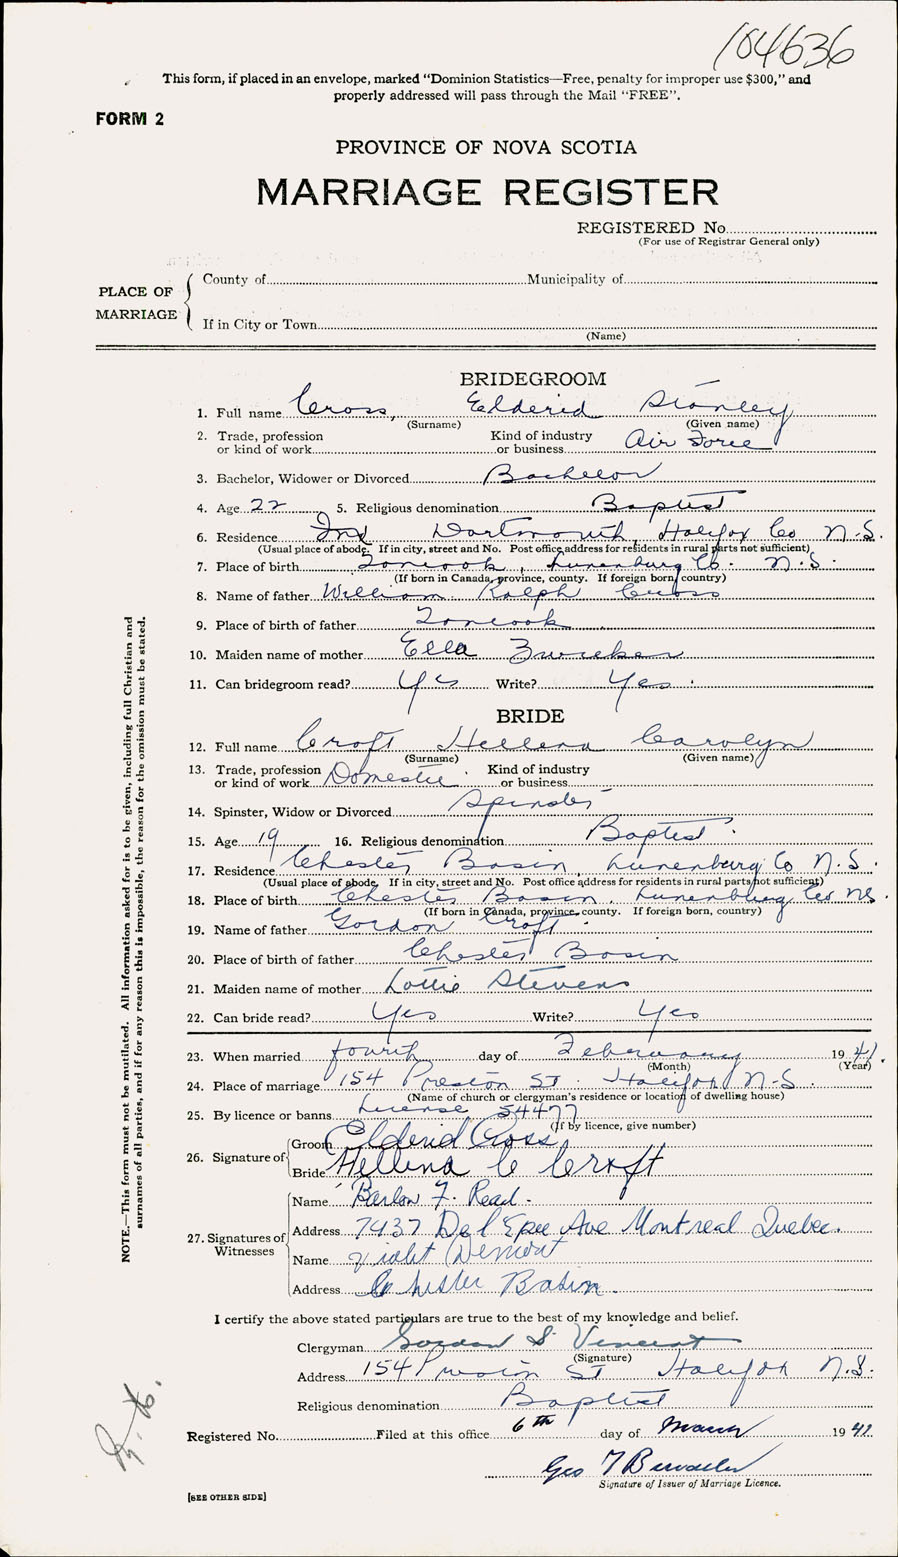 104636
This form, if placed in an envelope, marked "Dominion Statistics—Free, penalty for improper use $300," and
properly addressed will pass through the Mail "FREE".
FORM 2
PROVINCE OF NOVA SCOTIA
MARRIAGE REGISTER
REGISTERED No.
(For use of Registrar General only)
PLACE OF MARRIAGE
County of Municipality of
If in City or Town
(Name)
BRIDEGROOM
1. Full name Cross, Elderid Stanley
(Surname) (Given name)
2. Trade, profession or kind of work Kind of industry or business Air Force
3. Bachelor, Widower or Divorced Bachelor
4. Age 22 5. Religious denomination Baptist
6. Residence Dartmouth, Halifax Co N.S.
(Usual place of abode. If in city, street and No. Post office address for residents in rural parts not sufficient)
7. Place of birth Tancook, Lunenburg Co. N.S.
(If born in Canada, province, county. If foreign born, country)
8. Name of father William Ralph Cross
9. Place of birth of father Tancook
10. Maiden name of mother Ella Zwicker
11. Can bridegroom read? Yes Write? Yes.
BRIDE
12. Full name Croft Hellena Carolyn
(Surname) (Given name)
13. Trade, profession or kind of work Domestic. Kind of industry or business
14. Spinster, Widow or Divorced Spinster
15. Age 19 16. Religious denomination Baptist.
17. Residence Chester Basin, Lunenburg Co N.S.
(Usual place of abode. If in city, street and No. Post office address for residents in rural parts not sufficient)
18. Place of birth Chester Basin, Lunenburg Co. NS.
(If born in Canada, province, county. If foreign born, country)
19. Name of father Gordon Croft.
20. Place of birth of father Chester Basin
21. Maiden name of mother Lottie Stevens
22. Can bride read? Yes Write? Yes
23. When married fourth day of February 1941.
(Month) (Year)
24. Place of marriage 154 Preston St. Halifax N-S.
(Name of church or clergyman's residence or location of dwelling house)
25. By licence or banns License 54477
(If by licence, give number)
26. Signature of Groom Elderid Cross
Bride Hellena C Croft
27. Signatures of Witnesses Name Barlow F. Read.
Address 7437 De l'Epee Ave Montreal Quebec.
Name Violet Demont
Address Chester Basin.
I certify the above stated particulars are true to the best of my knowledge and belief.
Clergyman Gordon S. Vincent
(Signature)
Address 154 Preston ST Halifax N.S.
Religious denomination Baptist
Registered No. Filed at this office 6th day of March 1942
Geo T
Signature of Issuer of Marriage Licence.
[SEE OTHER SIDE]
NOTE.—This form must not be mutilated. All information asked for is to be given, including full Christian and
surnames of all parties, and if for any reason this is impossible, the reason for the omission must be stated.